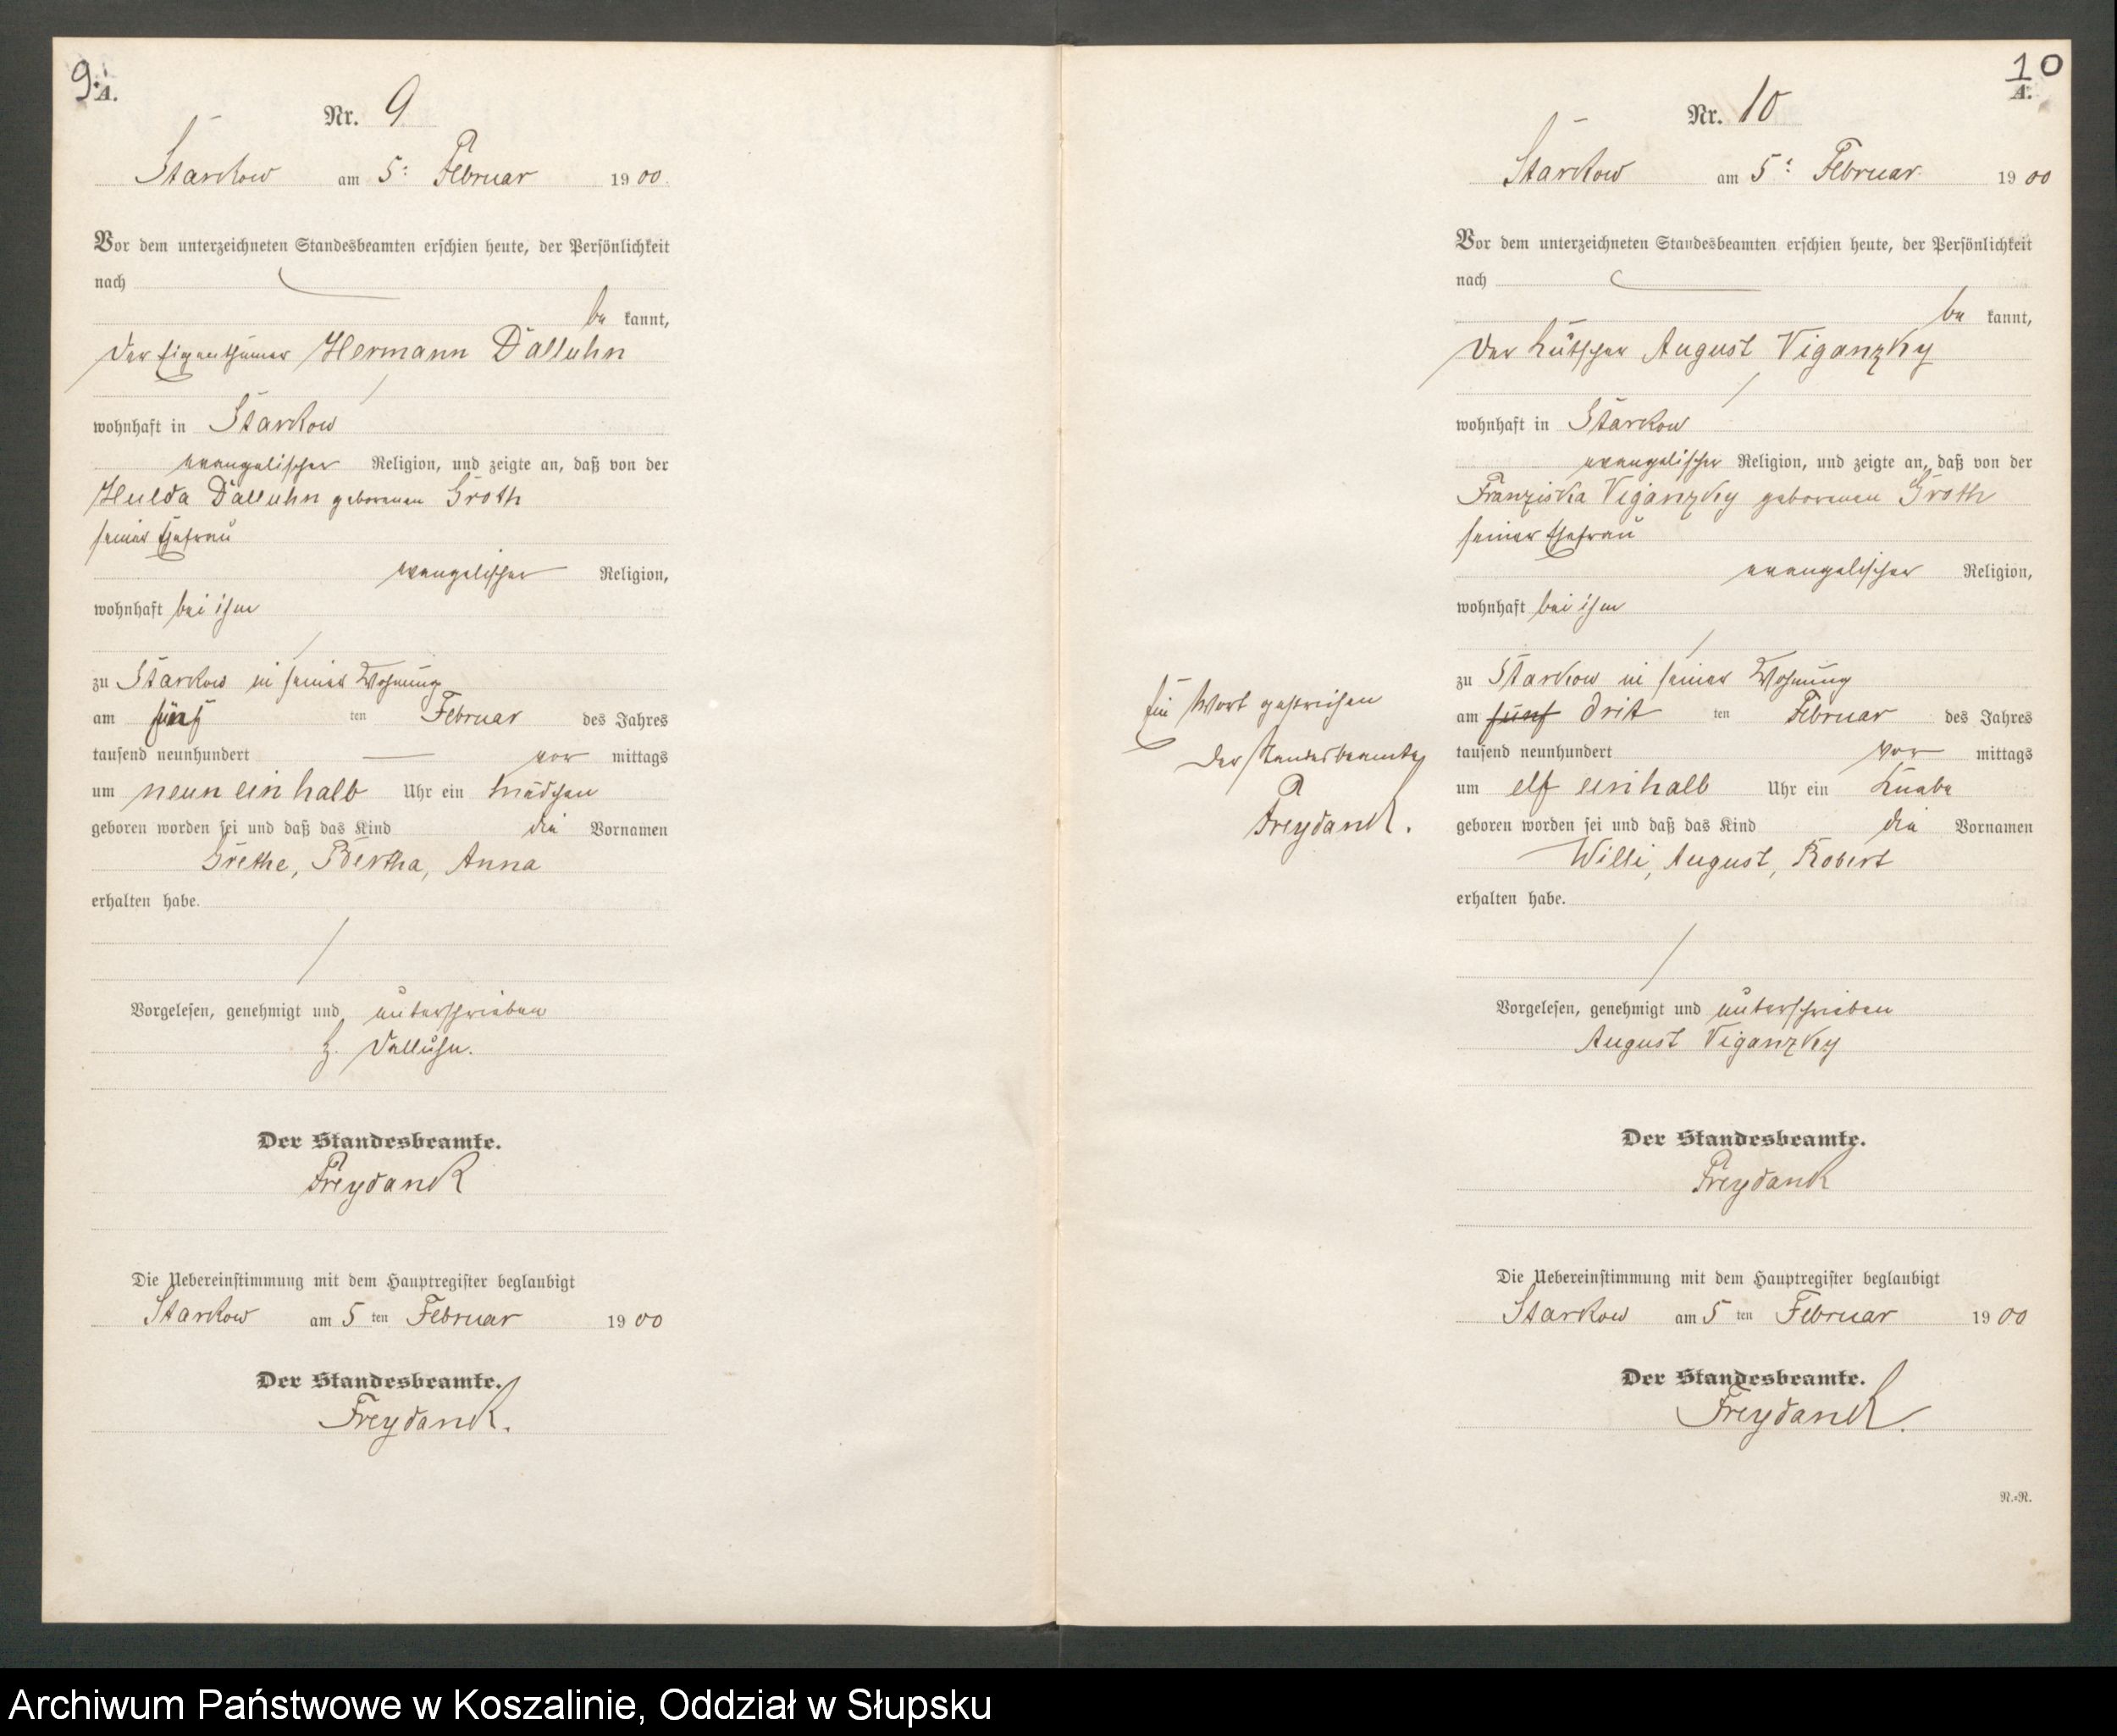 9.
A.
Nr. 9
Starkow am 5: Februar 1900.
Vor dem unterzeichneten Standesbeamten erschien heute, der Persönlichkeit
nach
be kannt,
der Eigenthümer Hermann Dalluhn
wohnhaft in Starkow
evangelischer Religion, und zeigte an, daß von der
Hulda Dalluhn geborenen Groth
seiner Ehefrau
evangelischer Religion,
wohnhaft bei ihm
zu Starkow in seiner Wohnung
am fünf ten Februar des Jahres
tausend neunhundert — vor mittags
um neun ein halb Uhr ein Mädchen
geboren worden sei und daß das Kind die Vornamen
Grethe, Bertha, Anna
erhalten habe.
Vorgelesen, genehmigt und unterschrieben
H. Dalluhn.
Der Standesbeamte.
Freydank
Die Uebereinstimmung mit dem Hauptregister beglaubigt
Starkow am 5 ten Februar 1900
Der Standesbeamte.
Freydank.
10
A.
Nr. 10
Starkow am 5: Februar 1900
Vor dem unterzeichneten Standesbeamten erschien heute, der Persönlichkeit
nach
be kannt,
der Kutscher August Viganzky
wohnhaft in Starkow
evangelischer Religion, und zeigte an, daß von der
Franziska Viganzky geborenen Groth
seiner Ehefrau
evangelischer Religion,
wohnhaft bei ihm
zu Starkow in seiner Wohnung
am fünf drit ten Februar des Jahres
tausend neunhundert vor mittags
um elf ein halb Uhr ein Knabe
geboren worden sei und daß das Kind die Vornamen
Willi, August, Robert
erhalten habe.
Ein Wort gestrichen
Der Standesbeamte
Freydank.
Vorgelesen, genehmigt und unterschrieben
August Viganzky
Der Standesbeamte.
Freydank
Die Uebereinstimmung mit dem Hauptregister beglaubigt
Starkow am 5 ten Februar 1900
Der Standesbeamte.
Freydank.
R.=R.
Archiwum Państwowe w Koszalinie, Oddział w Słupsku